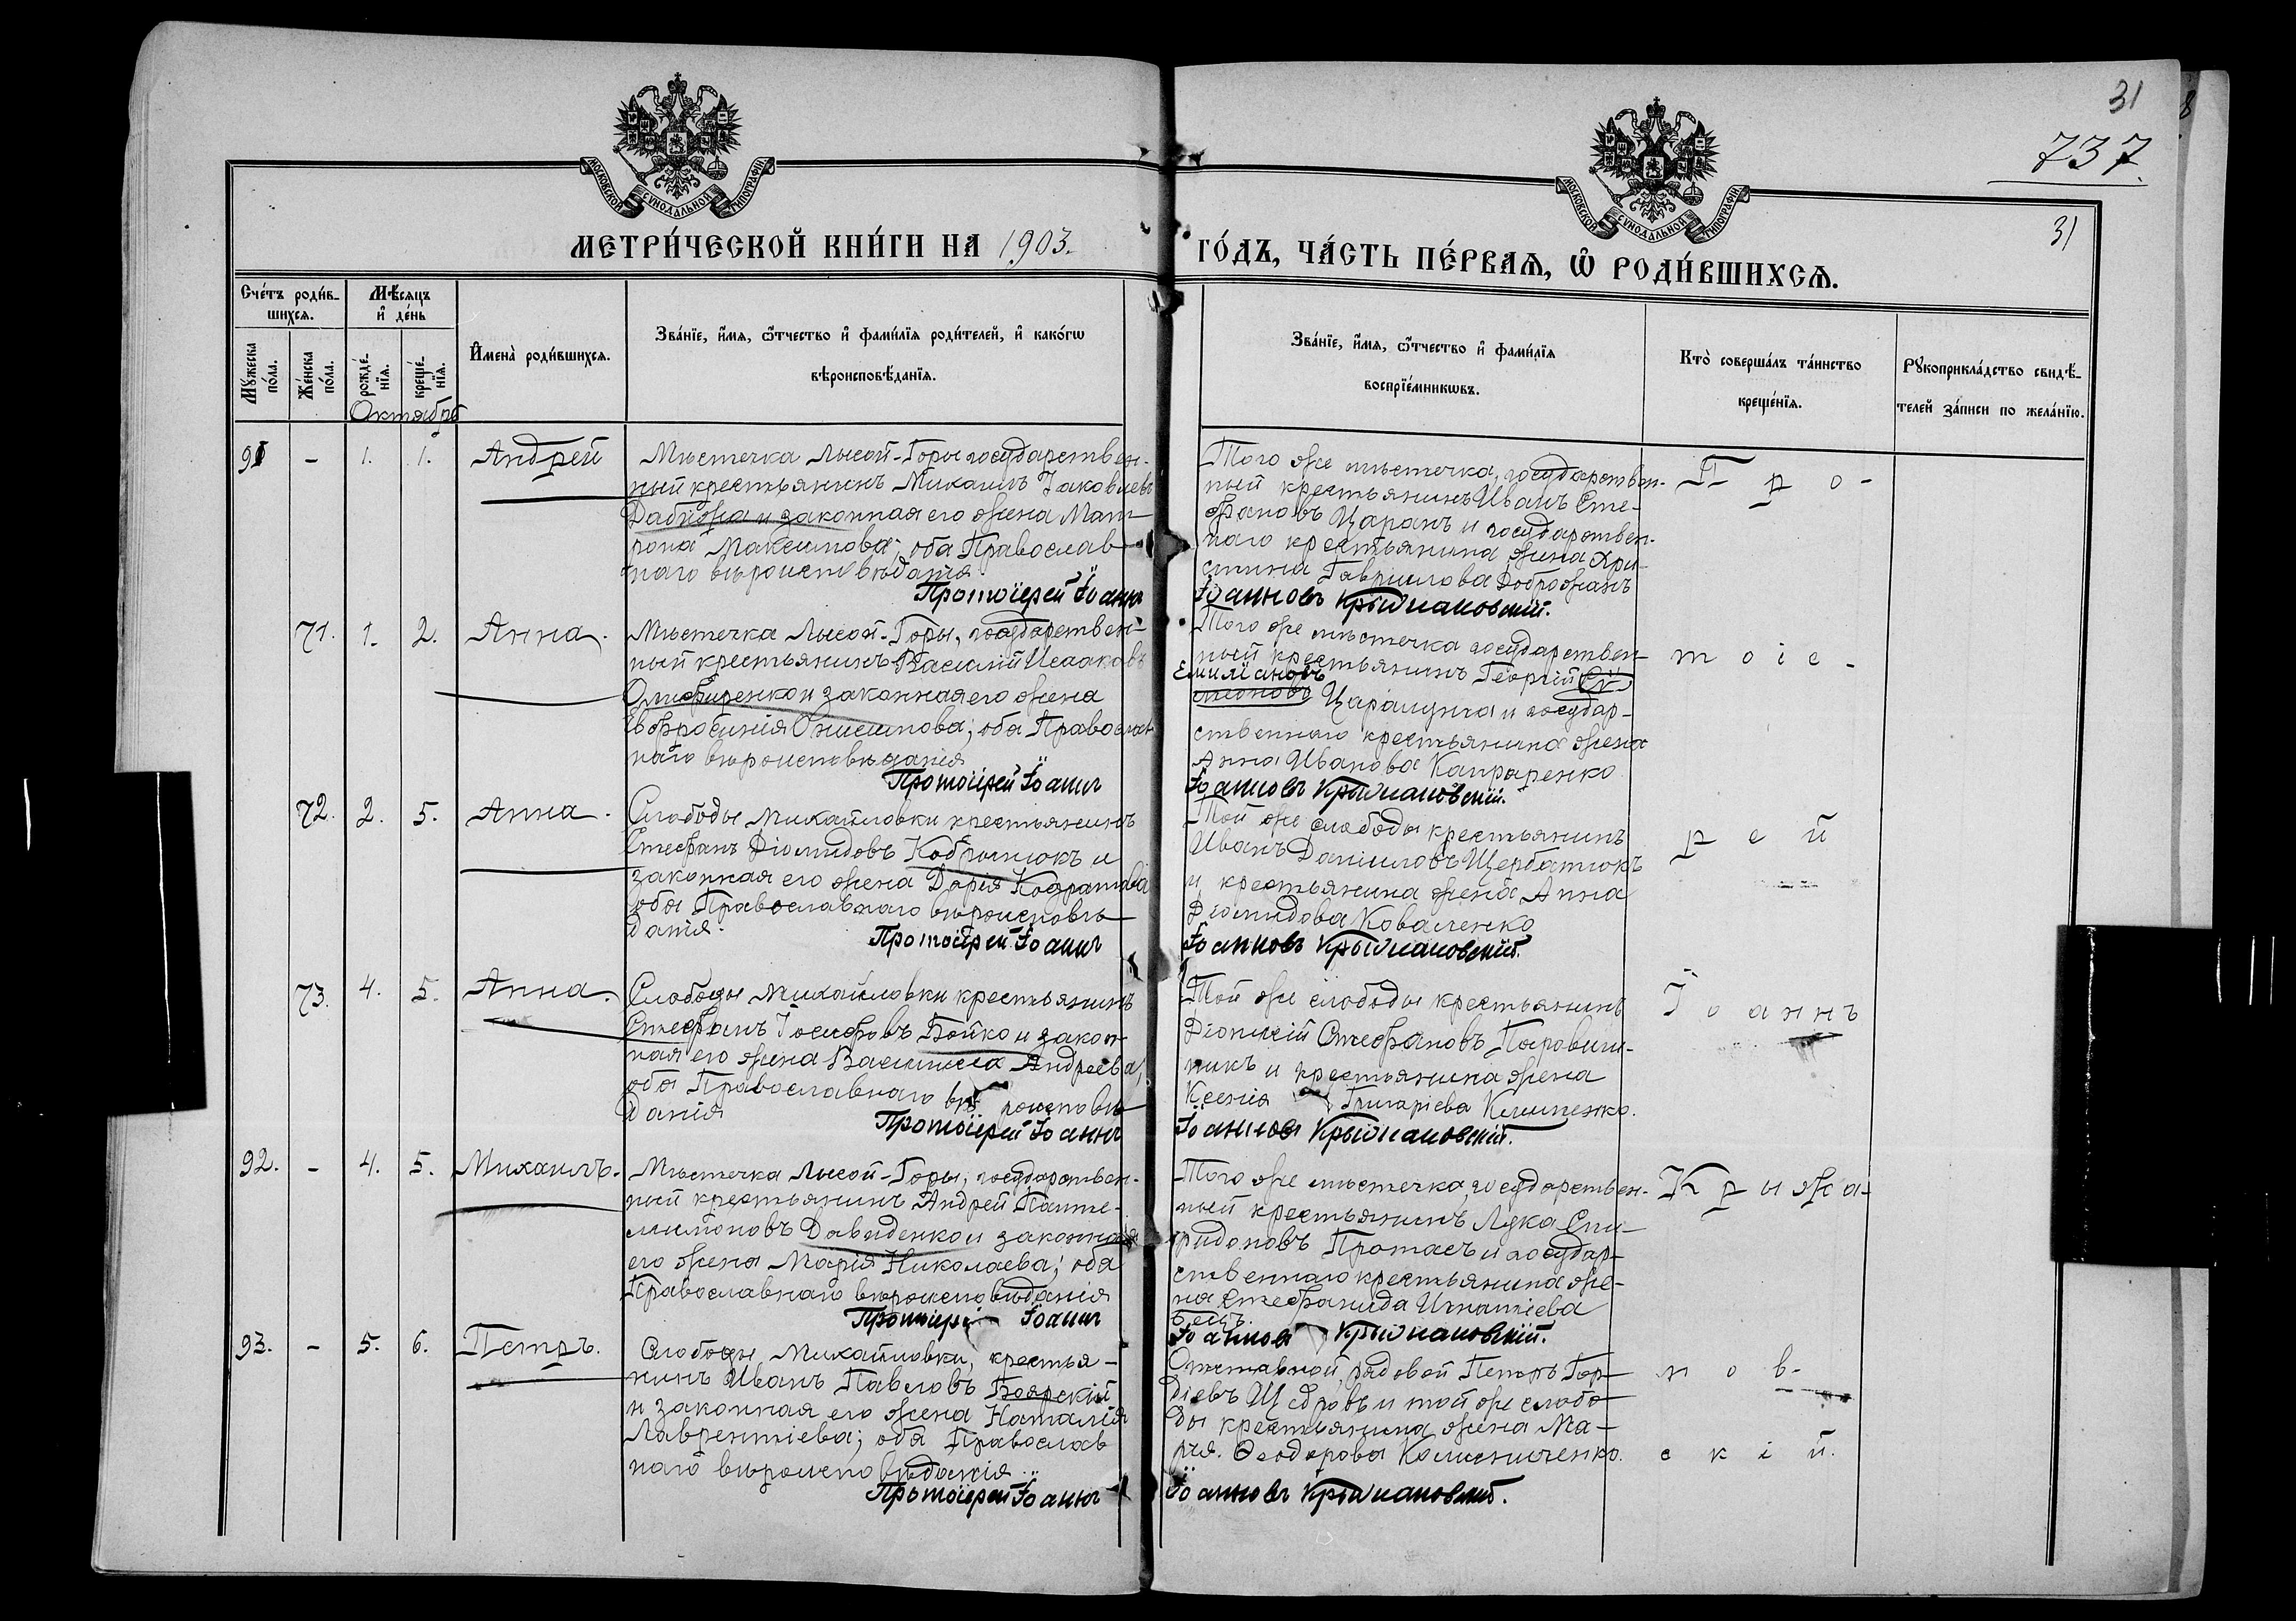 31
737.
31
МОСКОВСКОЙ СѴНОДАЛЬНОЙ ТИПОГРАФІИ
МОСКОВСКОЙ СѴНОДАЛЬНОЙ ТИПОГРАФІИ
МЕТРИ́ЧЕСКОЙ КНИ́ГИ НА 1903.
ГО́ДЪ, ЧА́СТЬ ПЕ́РВАѦ, Ѡ҆ РОДИ́ВШИХСѦ.
Сче́тъ роди́в-
шихсѧ.
Мѣ́сѧцъ
и҆ де́нь
Мꙋ́жеска
по́ла.
Же́нска
по́ла.
рожде́-
нїѧ.
креще́-
нїѧ.
Октябрь
И҆мена̀ роди́вшихсѧ.
Зва́нїе, и҆́мѧ, ѻ҆́тчество и҆ фами́лїѧ роди́телей, и҆ како́гѡ
вѣроисповѣ́данїѧ.
Зва́нїе, и҆́мѧ, ѻ҆́тчество и҆ фами́лїѧ
воспрїе́мникѡвъ.
Кто̀ соверша́лъ та́инство
креще́нїѧ.
Рꙋкоприкла́дство свидѣ́-
телей за́писи по жела́нїю.
91 - 1. 1. Андрей
Мѣстечка Лысой-Горы государствен-
ный крестьянинъ Михаилъ Іаковлевъ
Дабижа и законная его жена Мат-
рона Максимова; оба Православ-
наго вѣроисповѣданія
Протоіерей Іоаннъ
Того же мѣстечка, государствен-
ный крестьянинъ Иванъ Сте-
фановъ Царанъ и государствен-
наго крестьянина жена Хри-
стина Гавриилова Доброжанъ
Іоанновъ Крыжановскій.
П р о -
71. 1. 2. Анна.
Мѣстечка Лысой-Горы, государствен-
ный крестьянинъ Василій Исааковъ
Онофиренко и законная его жена
Евфросинія Онисимова; оба Православ-
наго вѣроисповѣданія
Протоіерей Іоаннъ
Того же мѣстечка государствен-
ный крестьянинъ Георгій Си-
Емиліановъ
меоновъ Царалунга и государ-
ственнаго крестьянина жена
Анна Иванова Капраренко
Іоанновъ Крыжановскій.
т о і е -
72. 2. 5. Анна.
Слободы Михайловки крестьянинъ
Стефанъ Діомидовъ Кобрынюкъ и
законная его жена Дарія Кодратова
оба Православнаго вѣроисповѣ-
данія.
Протоіерей Іоаннъ
Той же слободы крестьянинъ
Иванъ Даніиловъ Щербатюкъ
и крестьянина жена Анна
Діомидова Коваленко
Іоанновъ Крыжановскій.
р е й
73. 4. 5. Анна.
Слободы Михайловки крестьянинъ
Стефанъ Іосифовъ Бойко и закон-
ная его жена Василиса Андреева,
оба Православнаго вѣроисповѣ-
данія
Протоіерей Іоаннъ
Той же слободы крестьянинъ
Діонисій Стефановъ
никъ и крестьянина жена
Ксенія Григоріева Клименко.
Іоанновъ Крыжановскій.
І о а н н ъ
92. - 4. 5. Михаилъ.
Мѣстечка Лысой-Горы, государствен-
ный крестьянинъ Андрей Панте-
лимоновъ Давиденко и законная
его жена Марія Николаева; оба
Православнаго вѣроисповѣданія
Протоіерей Іоаннъ
Того же мѣстечка, государствен-
ный крестьянинъ Лука Спи-
ридоновъ Протасъ и государ-
ственнаго крестьянина же-
на Стефанида Игнатіева
Іоанновъ Крыжановскій.
К р ы ж а -
93. - 5. 6. Петръ.
Слободы Михайловки, крестья-
нинъ Иванъ Павловъ Боярскій
и законная его жена Наталія
Лаврентіева; оба Православ
наго вѣроисповѣданія
Протоіерей Іоаннъ
Отставной рядовой Петръ Гор-
діевъ Щедровъ и той же слобо-
ды крестьянина жена Ма-
рія Ѳеодорова Колисниченко.
Іоанновъ Крыжановскій.
н о в -
с к і й.